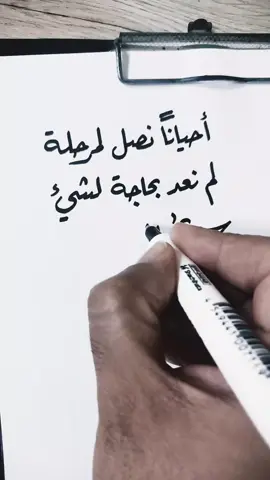 أحياناً نصل لمرحلة
لم نعد بحاجة لشيئ